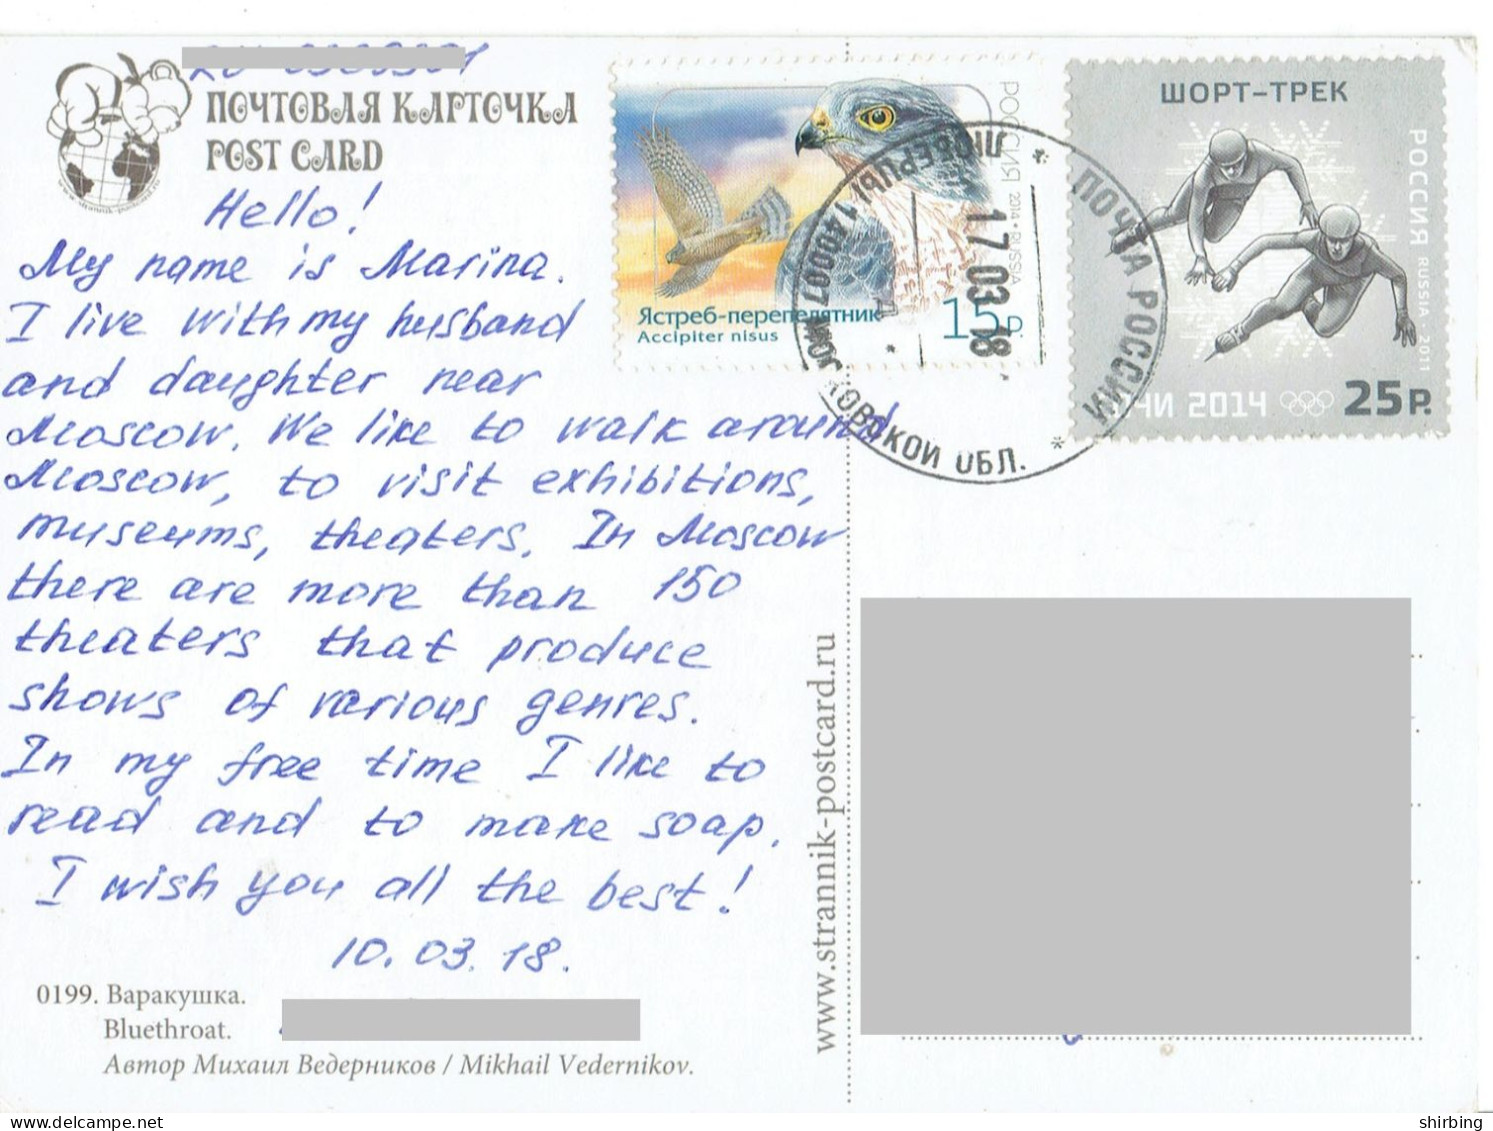 ПОЧТОВАЯ КАРТОЧКА
POST CARD
Hello!
My name is Marina.
I live with my husband
and daughter near
Moscow. We like to walk around
Moscow, to visit exhibitions,
museums, theaters. In Moscow
there are more than 150
theaters that produce
shows of various genres.
In my free time I like to
read and to make soap.
I wish you all the best!
10.03.18.
0199. Варакушка.
Bluethroat.
Автор Михаил Ведерников / Mikhail Vedernikov.
www.strannik-postcard.ru
РОССИЯ 2014 • RUSSIA
Ястреб-перепелятник
Accipiter nisus
15р
ШОРТ-ТРЕК
РОССИЯ RUSSIA 2011
СОЧИ 2014
25Р.
ПОЧТА РОССИИ
17 03 18
ЛЮБЕРЦЫ 140007 МОСКОВСКОЙ ОБЛ.
shirbing